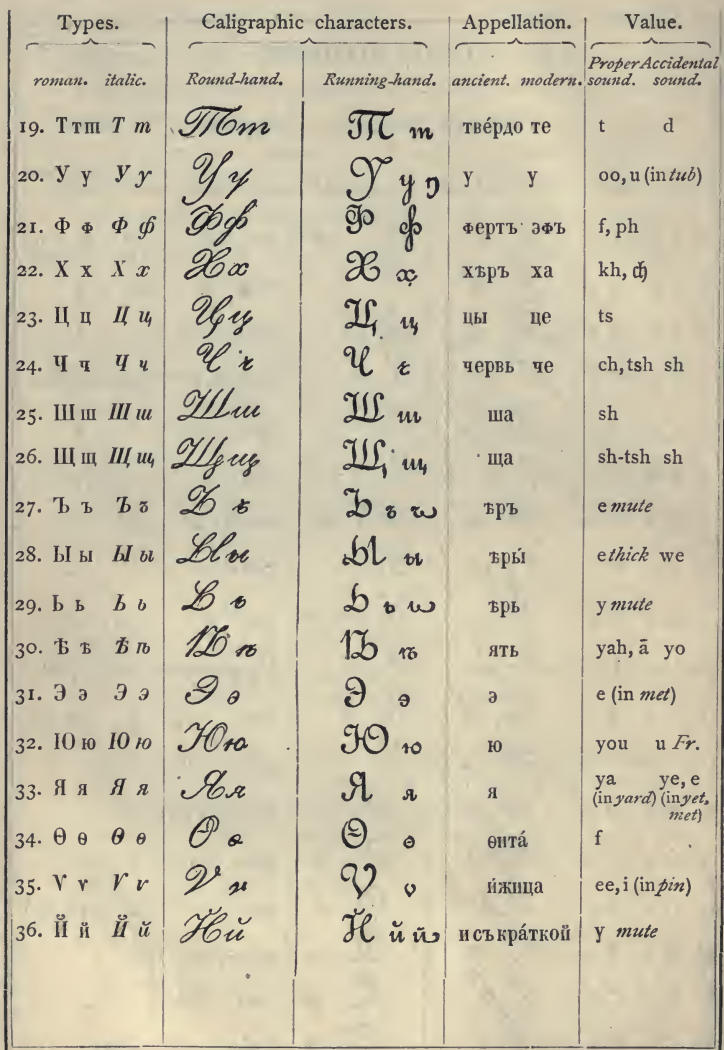 Types. Caligraphic characters. Appellation. Value.
roman. italic. Round-hand. Running-hand. ancient. modern. Proper sound. Accidental sound.
19. Т т ш Т т Т т Т т твéрдо те t d
20. У у У у У у У у у у у oo, u (in tub)
21. Ф ф Ф ф Ф ф Ф ф фертъ эфъ f, ph
22. Х х Х х Х х Х х хѣръ ха kh, ch
23. Ц ц Ц ц Ц ц Ц ц цы це ts
24. Ч ч Ч ч Ч ч Ч ч червь че ch, tsh sh
25. Ш ш Ш ш Ш ш Ш ш ша sh
26. Щ щ Щ щ Щ щ Щ щ ща sh-tsh sh
27. Ъ ъ Ъ ъ Ъ ъ Ъ ъ ъ ѣръ e mute
28. Ы ы Ы ы Ы ы Ы ы ѣры́ e thick we
29. Ь ь Ь ь Ь ь Ь ь ь ѣрь y mute
30. Ѣ ѣ Ѣ ѣ Ѣ ѣ Ѣ ѣ ять yah, ā yo
31. Э э Э э Э э Э э э e (in met)
32. Ю ю Ю ю Ю ю Ю ю ю you u Fr.
33. Я я Я я Я я Я я я ya ye, e
(in yard) (in yet,
met)
34. Ѳ ѳ Ѳ ѳ Ѳ ѳ Ѳ ѳ ѳитá f
35. Ѵ ѵ Ѵ ѵ Ѵ ѵ Ѵ ѵ и́жица ee, i (in pin)
36. Й й Й й Й й Й й й и съ крáткой y mute